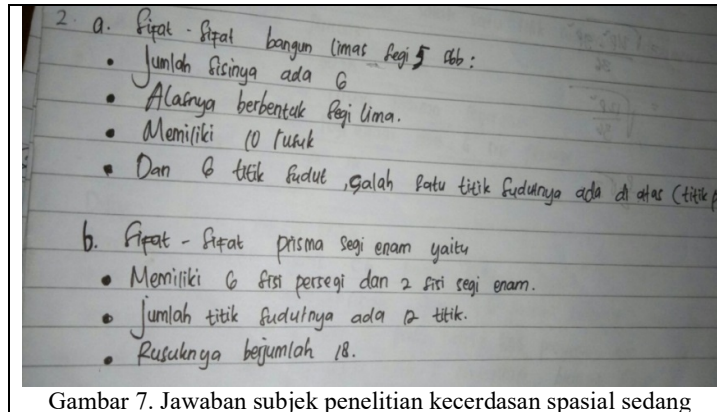 2. a. Sifat - Sifat bangun limas segi 5 sbb :
• Jumlah sisinya ada 6
• Alasnya berbentuk segi lima.
• Memiliki 10 rusuk
• Dan 6 titik sudut, salah satu titik sudutnya ada di atas (titik p
b. Sifat - Sifat prisma segi enam yaitu
• Memiliki 6 sisi persegi dan 2 sisi segi enam.
• Jumlah titik sudutnya ada 12 titik.
• Rusuknya berjumlah 18.
Gambar 7. Jawaban subjek penelitian kecerdasan spasial sedang